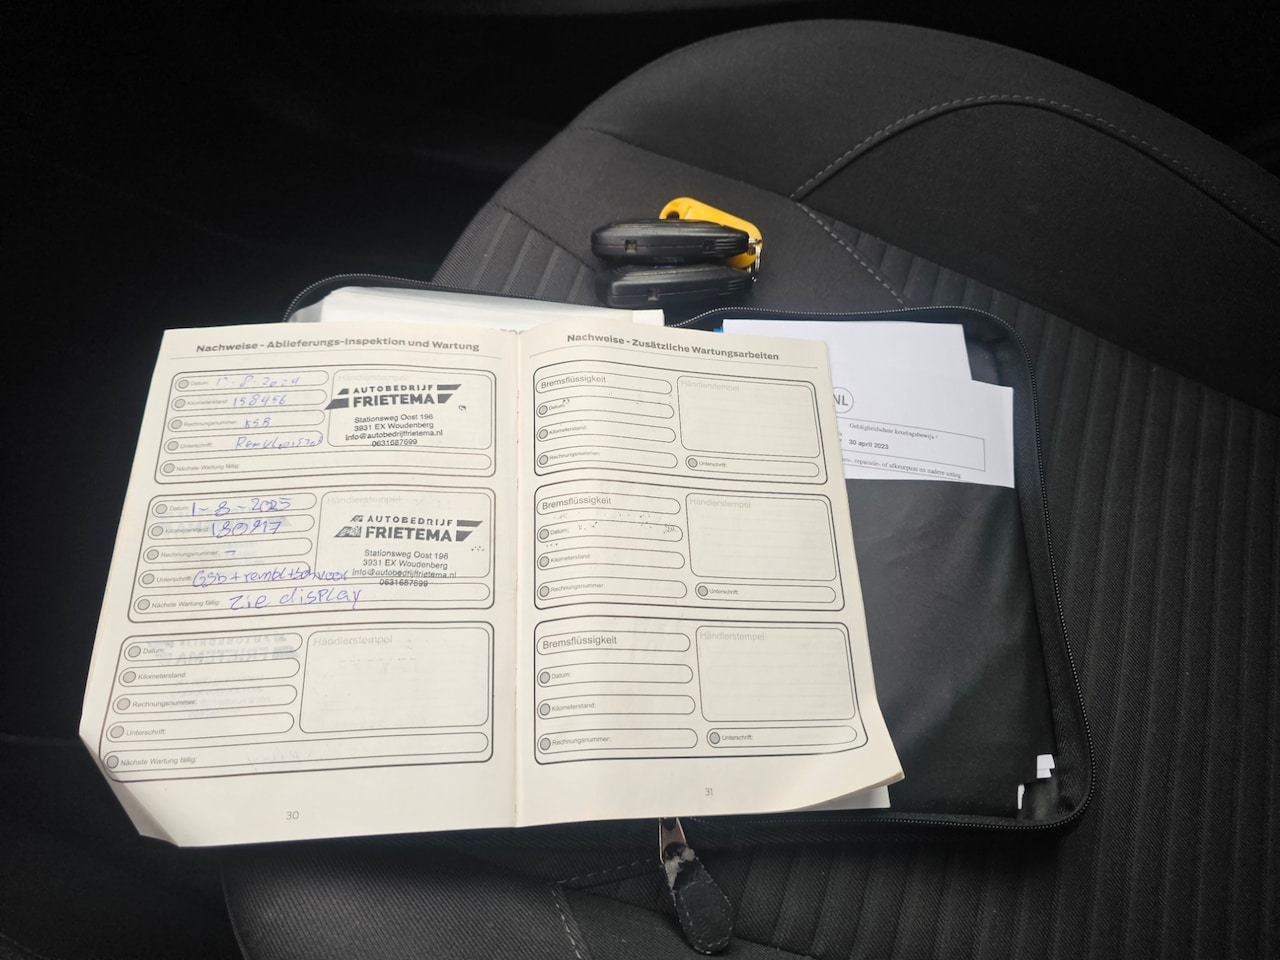 Nachweise - Ablieferungs-Inspektion und Wartung
Datum: 1-8-2024
Kilometerstand: 158456
Rechnungsnummer: KSB
Unterschrift:
Nächste Wartung fällig:
Händlerstempel
AUTOBEDRIJF
FRIETEMA
Stationsweg Oost 196
3931 EX Woudenberg
info@autobedrijffrietema.nl
0631687699
Datum: 1-8-2025
Kilometerstand:
Rechnungsnummer: -
Unterschrift:
Nächste Wartung fällig: Zie display
Händlerstempel
AUTOBEDRIJF
FRIETEMA
Stationsweg Oost 196
3931 EX Woudenberg
info@autobedrijffrietema.nl
0631687699
Datum:
Kilometerstand:
Rechnungsnummer:
Unterschrift:
Nächste Wartung fällig:
Händlerstempel
30
Nachweise - Zusätzliche Wartungsarbeiten
Bremsflüssigkeit
Datum:
Kilometerstand:
Rechnungsnummer:
Händlerstempel
Unterschrift:
Bremsflüssigkeit
Datum:
Kilometerstand:
Rechnungsnummer:
Händlerstempel
Unterschrift:
Bremsflüssigkeit
Datum:
Kilometerstand:
Rechnungsnummer:
Händlerstempel
Unterschrift:
31
NL
Geldigheidsduur keuringsbewijs
30 april 2023
reparatie- of afkeurpunt en nadere uitleg